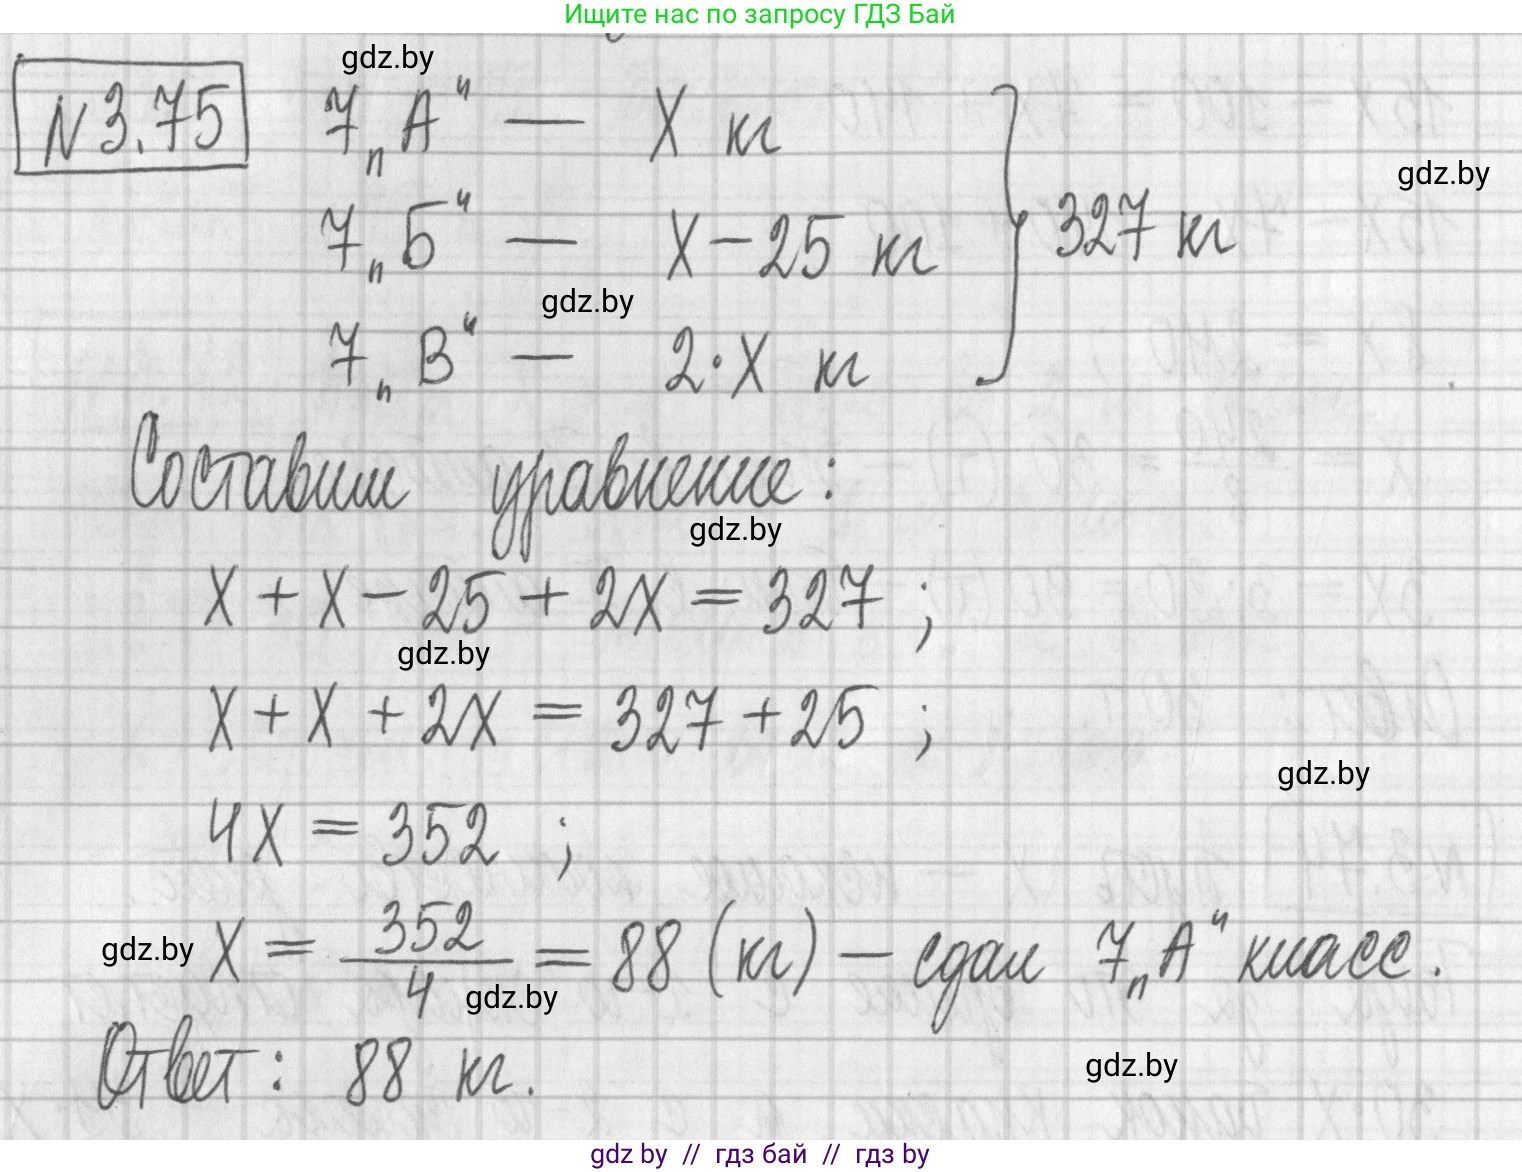 Ищите нас по запросу ГДЗ Бай
gdz.by
N 3.75 7 „А“ — х кг
gdz.by
7 „Б“ — х − 25 кг } 327 кг
gdz.by
7 „В“ — 2·х кг
Составим уравнение:
gdz.by
х + х − 25 + 2х = 327 ;
gdz.by
х + х + 2х = 327 + 25 ;
gdz.by
4х = 352 ;
gdz.by х = 352/4 = 88 (кг) — сдал 7 „А“ класс.
gdz.by
Ответ: 88 кг.
gdz.by
gdz.by // гдз бай // гдз by